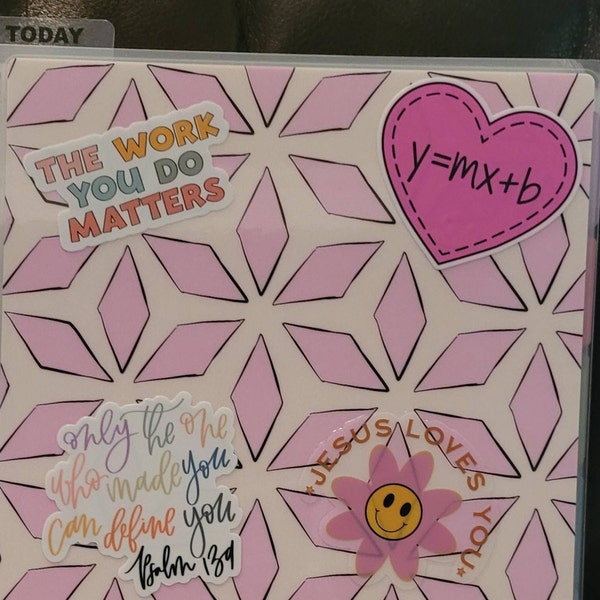 TODAY
THE WORK
YOU DO
MATTERS
y=mx+b
only the one
who made you
can define you
Psalm 139
JESUS LOVES YOU